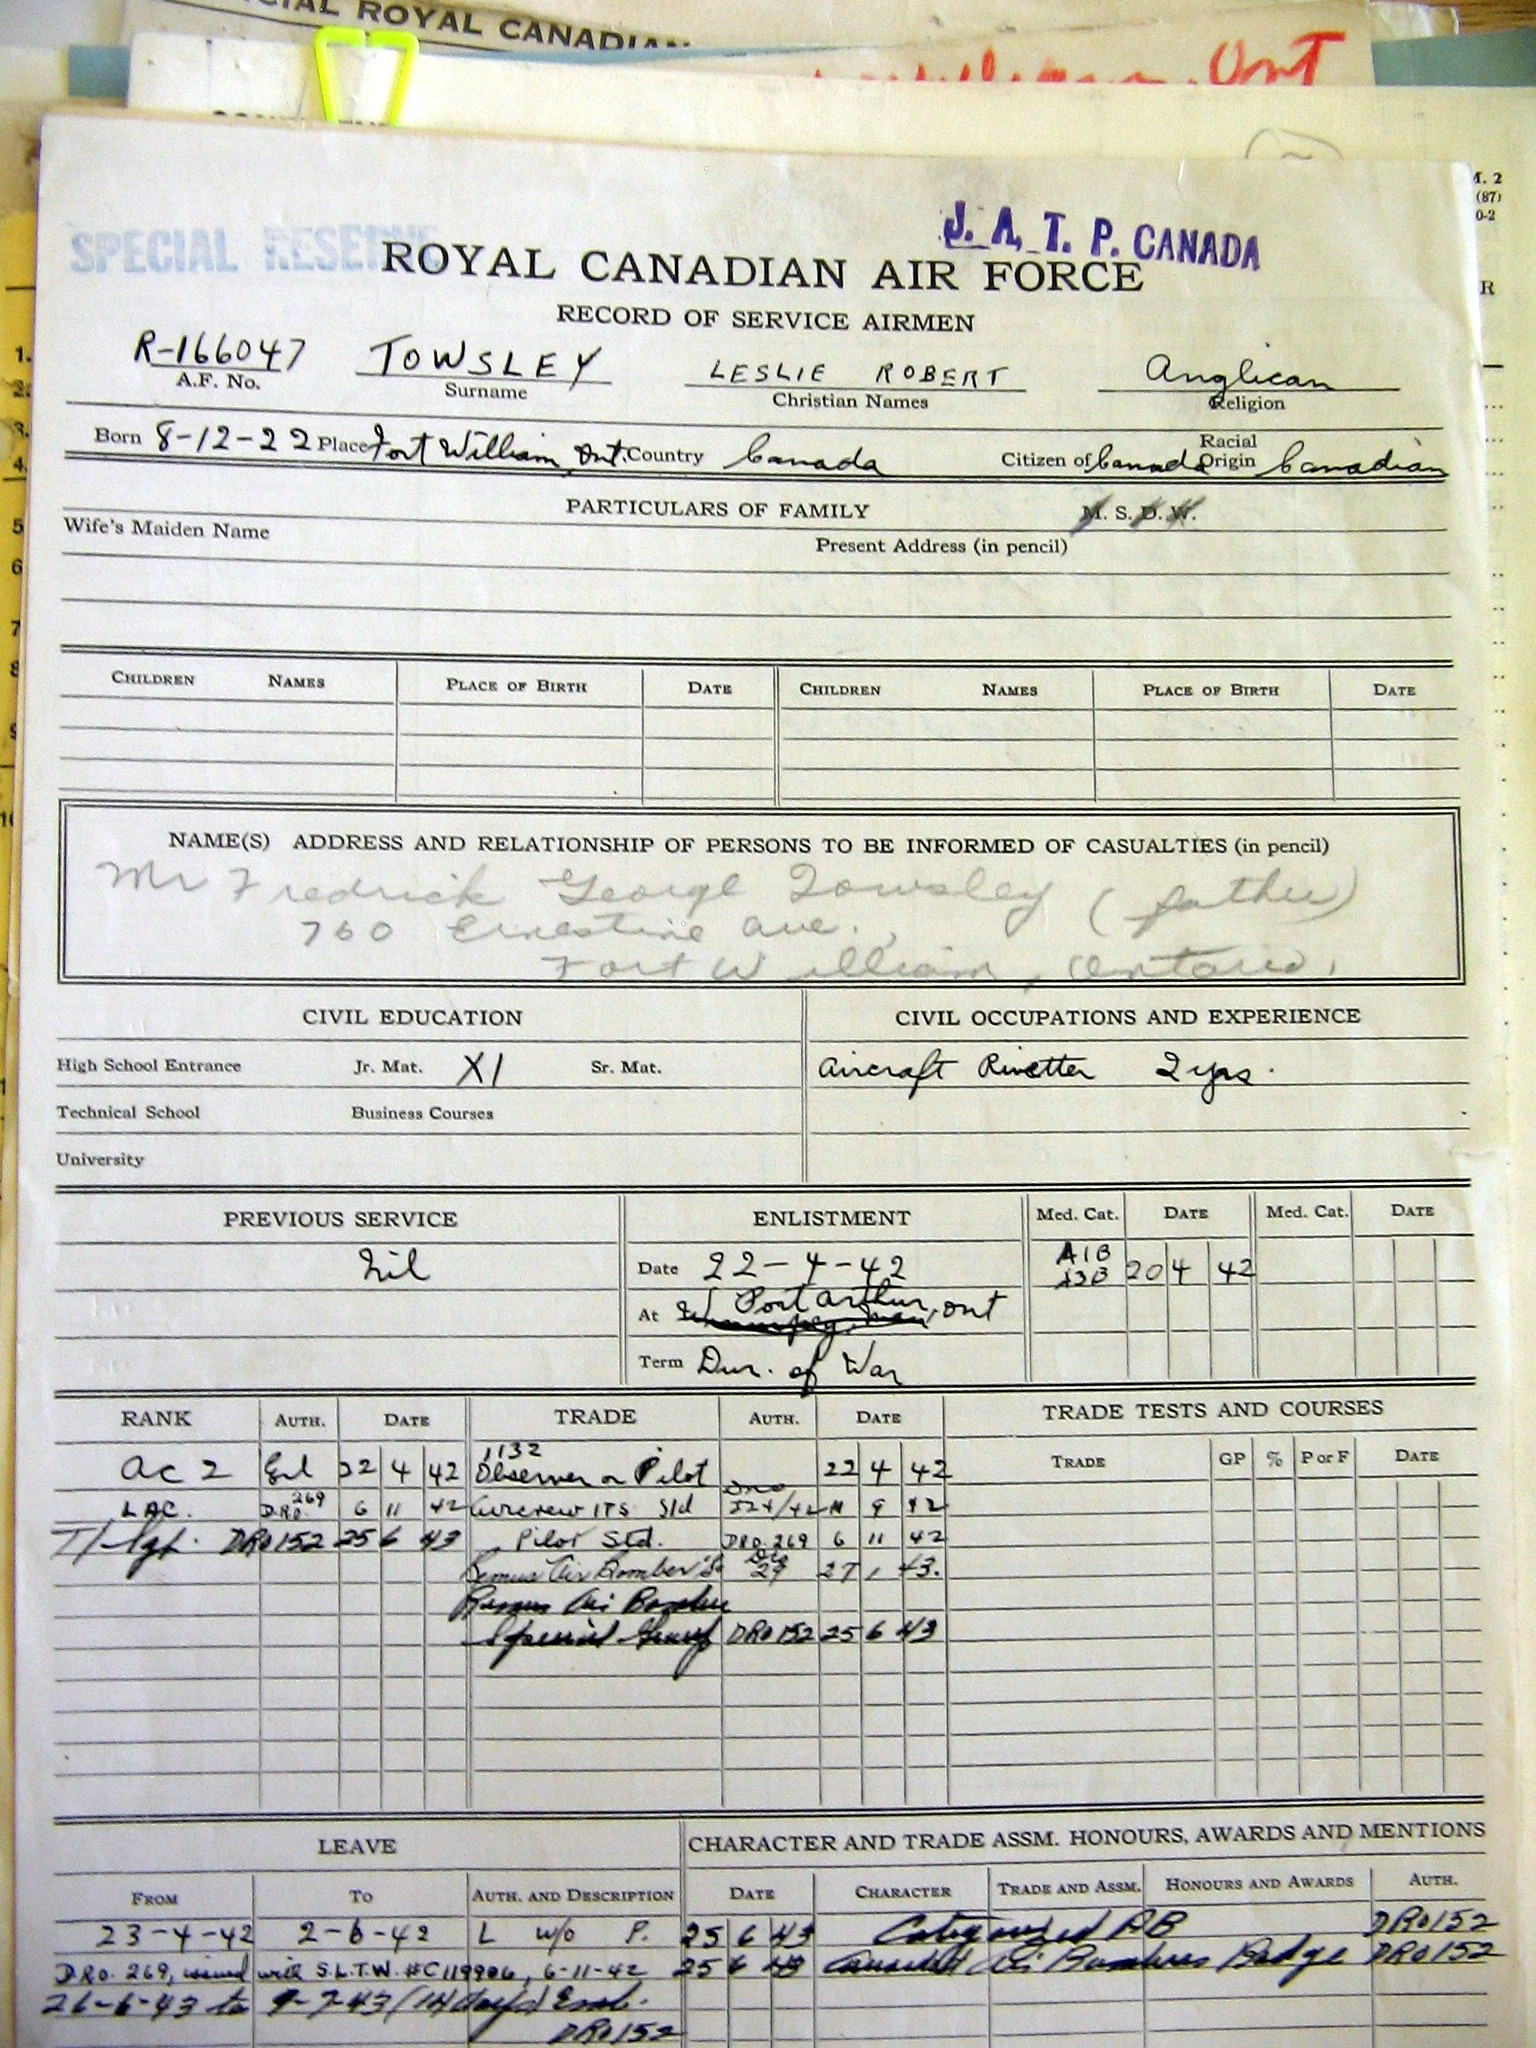 ROYAL CANADIAN
Ont
M. 2
(87)
0-2
R
SPECIAL RESERVE
J. A. T. P. CANADA
ROYAL CANADIAN AIR FORCE
RECORD OF SERVICE AIRMEN
R-166047 TOWSLEY LESLIE ROBERT Anglican
A.F. No. Surname Christian Names Religion
Born 8-12-22 Place Fort William, Ont. Country Canada Citizen of Canada Racial Origin Canadian
PARTICULARS OF FAMILY M. S. D. W.
Wife's Maiden Name Present Address (in pencil)
CHILDREN NAMES PLACE OF BIRTH DATE CHILDREN NAMES PLACE OF BIRTH DATE
NAME(S) ADDRESS AND RELATIONSHIP OF PERSONS TO BE INFORMED OF CASUALTIES (in pencil)
Mr Fredrick George Towsley (father)
760 Ernestine ave.,
Fort William, Ontario,
CIVIL EDUCATION CIVIL OCCUPATIONS AND EXPERIENCE
High School Entrance Jr. Mat. XI Sr. Mat. Aircraft Rivetter 2 yrs.
Technical School Business Courses
University
PREVIOUS SERVICE ENLISTMENT Med. Cat. DATE Med. Cat. DATE
Nil Date 22-4-42 A1B A3B 20 4 42
At Port Arthur, Ont
Term Dur. of War
RANK AUTH. DATE TRADE AUTH. DATE TRADE TESTS AND COURSES
TRADE GP % P or F DATE
AC 2 Enl 22 4 42 1132 Observer or Pilot 22 4 42
LAC. D.R.O. 269 6 11 42 Aircrew ITS Std 9 42
T/Sgt. DRO152 25 6 43 Pilot Std. DRO. 269 6 11 42
Air Bomber's DRO 29 27 1 43.
Air Bomber
Special Group DRO152 25 6 43
LEAVE CHARACTER AND TRADE ASSM. HONOURS, AWARDS AND MENTIONS
FROM TO AUTH. AND DESCRIPTION DATE CHARACTER TRADE AND ASSM. HONOURS AND AWARDS AUTH.
23-4-42 2-6-42 L w/o P. 25 6 43 Categorized AB DRO152
D.R.O. 269, issued with S.L.T.W. #C119906, 6-11-42 25 6 43 Awarded Air Bombers Badge DRO152
26-6-43 to 9-7-43 (14 days) Emb.
DRO152